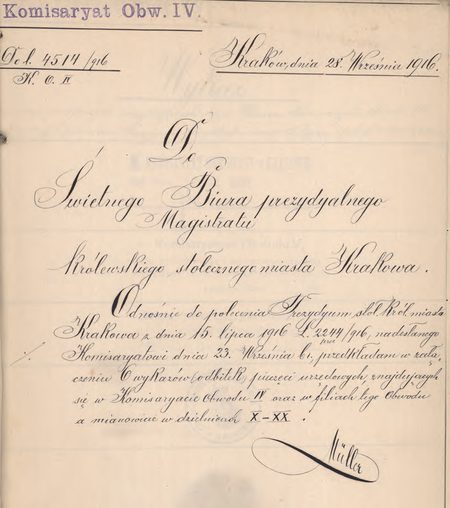 Komisaryat Obw. IV.
Do l. 4514/916
K. O. IV
Kraków, dnia 28. Września 1916.
Do
Świetnego Biura prezydyalnego
Magistratu
królewskiego stołecznego miasta Krakowa.
Odnośnie do polecenia Prezydyum stół. król. miasta
Krakowa z dnia 15. lipca 1916 L. 2244/916, nadesłanego
Komisaryatowi dnia 23. Września b.r. przedkładam w załą-
czeniu 6 wykazów (odbitek) pieczęci urzędowych, znajdujących
się w Komisaryacie Obwodu IV oraz w filiach tego Obwodu
a mianowicie w dzielnicach X-XX.
Müller